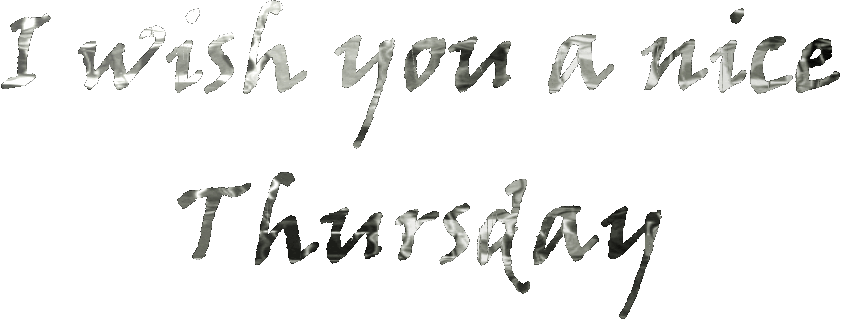 I wish you a nice
Thursday